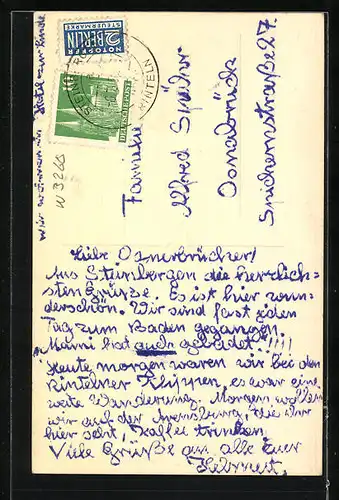 NOTOPFER
2 BERLIN
STEUERMARKE
DEUTSCHE POST
RINTELN
W 3265
Familie
Alfred
Osnabrück
straße 27
Liebe Osnerbrücker!
Aus Steinbergen die herzlich=
sten Grüße. Es ist hier wun=
derschön. Wir sind fast jeden
Tag zum Baden gegangen.
Mami hat auch gebadet!!!!!
Heute morgen waren wir bei den
Rintelner Klippen, es war eine
weite Wanderung. Morgen wollen
wir auf der Arensburg, die ihr
hier seht, Kaffee trinken.
Viele Grüße an alle Euer
Helmut.